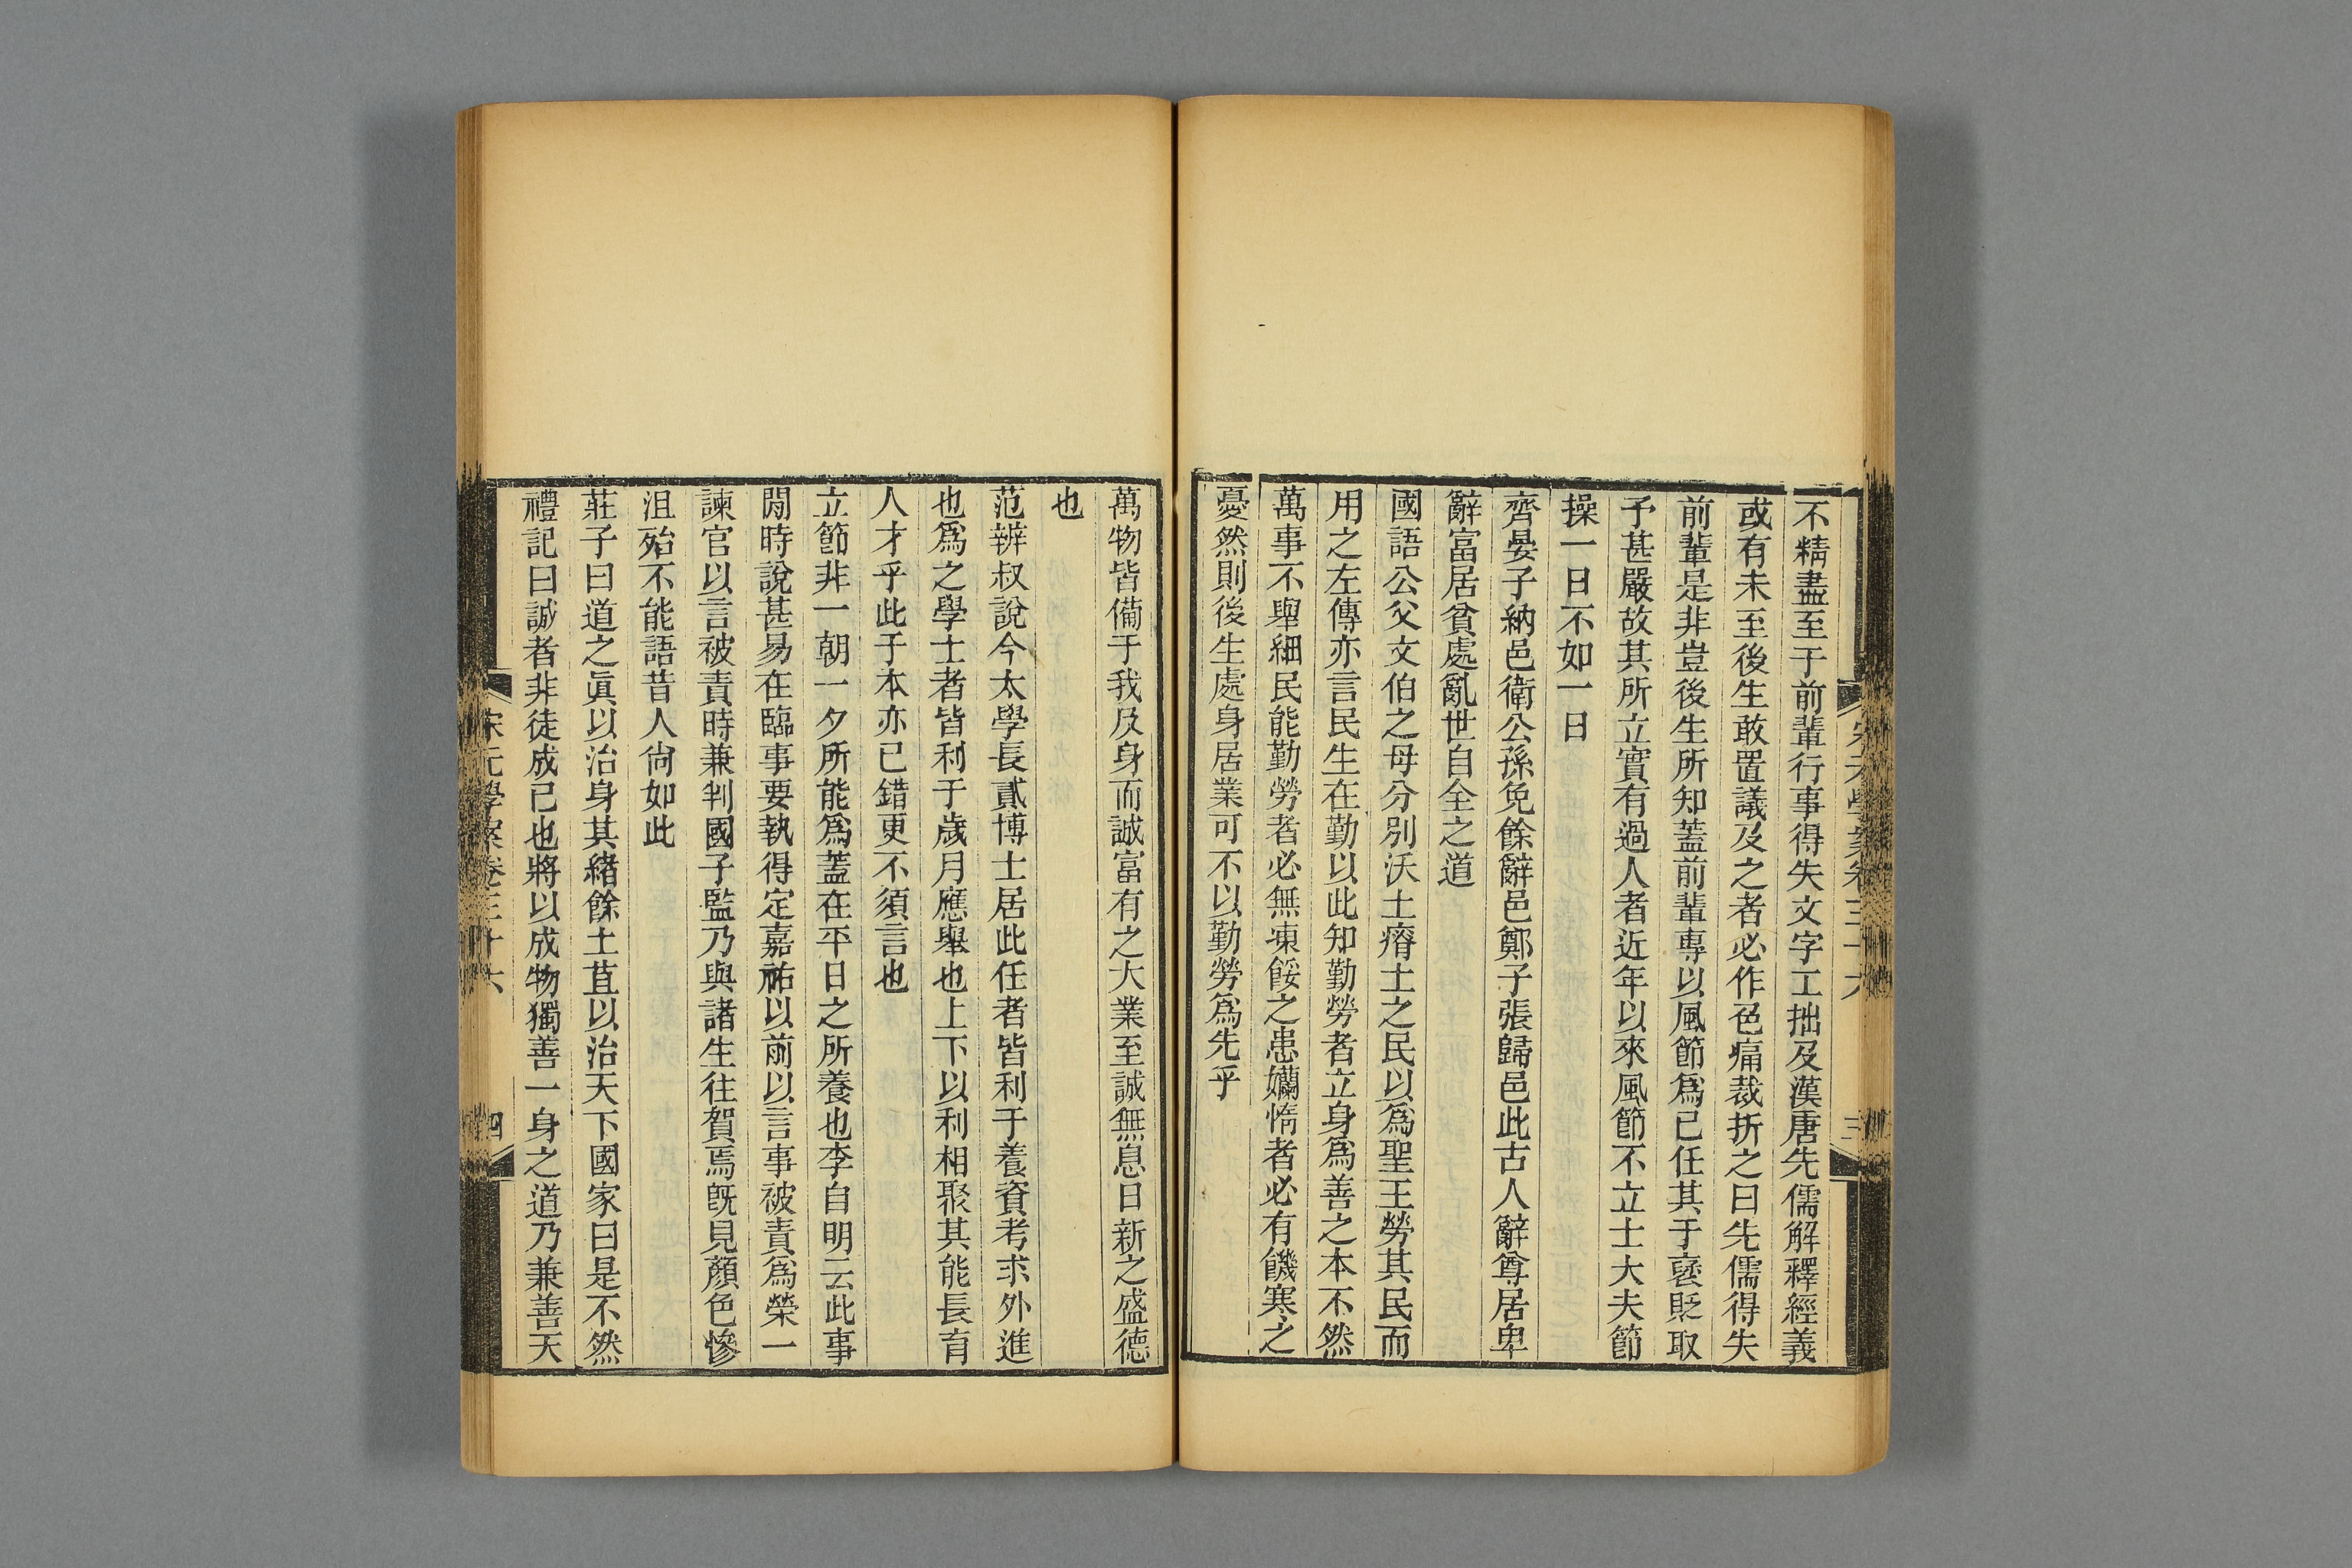 不精盡至于前輩行事得失文字工拙及漢唐先儒解釋經義
或有未至後生敢置議及之者必作色痛裁折之曰先儒得失
前輩是非豈後生所知蓋前輩專以風節爲已任其于襃貶取
予甚嚴故其所立實有過人者近年以來風節不立士大夫節
操一日不如一日
齊晏子納邑衛公孫免餘辭邑鄭子張歸邑此古人辭尊居卑
辭富居貧處亂世自全之道
國語公父文伯之母分別沃土瘠土之民以爲聖王勞其民而
用之左傳亦言民生在勤以此知勤勞者立身爲善之本不然
萬事不舉細民能勤勞者必無凍餒之患嬾惰者必有饑寒之
憂然則後生處身居業可不以勤勞爲先乎
宋元學案卷三十六
三
萬物皆備于我反身而誠富有之大業至誠無息日新之盛德
也
范辨叔說今太學長貳博士居此任者皆利于養資考求外進
也爲之學士者皆利于歲月應舉也上下以利相聚其能長育
人才乎此于本亦已錯更不須言也
立節非一朝一夕所能爲蓋在平日之所養也李自明云此事
閒時說甚易在臨事要執得定嘉祐以前以言事被責爲榮一
諫官以言被責時兼判國子監乃與諸生往賀焉旣見顏色慘
沮殆不能語昔人尙如此
莊子曰道之眞以治身其緖餘土苴以治天下國家曰是不然
禮記曰誠者非徒成己也將以成物獨善一身之道乃兼善天
宋元學案卷三十六
四